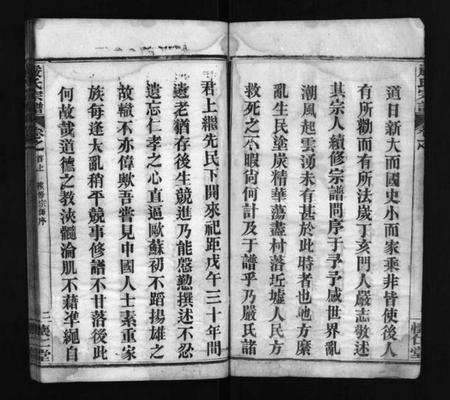 道日新大而國史小而家乘非皆使後人
有所勸而有所法歲丁亥門人嚴志敎述
其宗人續修宗譜問序于予予感世界亂
潮風起雲湧未有甚於此時者也地方糜
亂生民塗炭精華蕩盡村落近墟人民方
救死之不暇尙何計及于譜乎乃嚴氏諸
君上繼先民下開來祀距戊午三十年間
遺老猶存後生競進乃能慇懃撰述不忍
遺忘仁孝之心直逼歐蘇初不蹈揚雄之
故轍不亦偉歟吾嘗見中國人士素重家
族每逢大亂稍平競事修譜不甘落後此
何故哉道德之教浹髓淪肌不藉凖繩自
嚴氏宗譜
卷之
首上
二